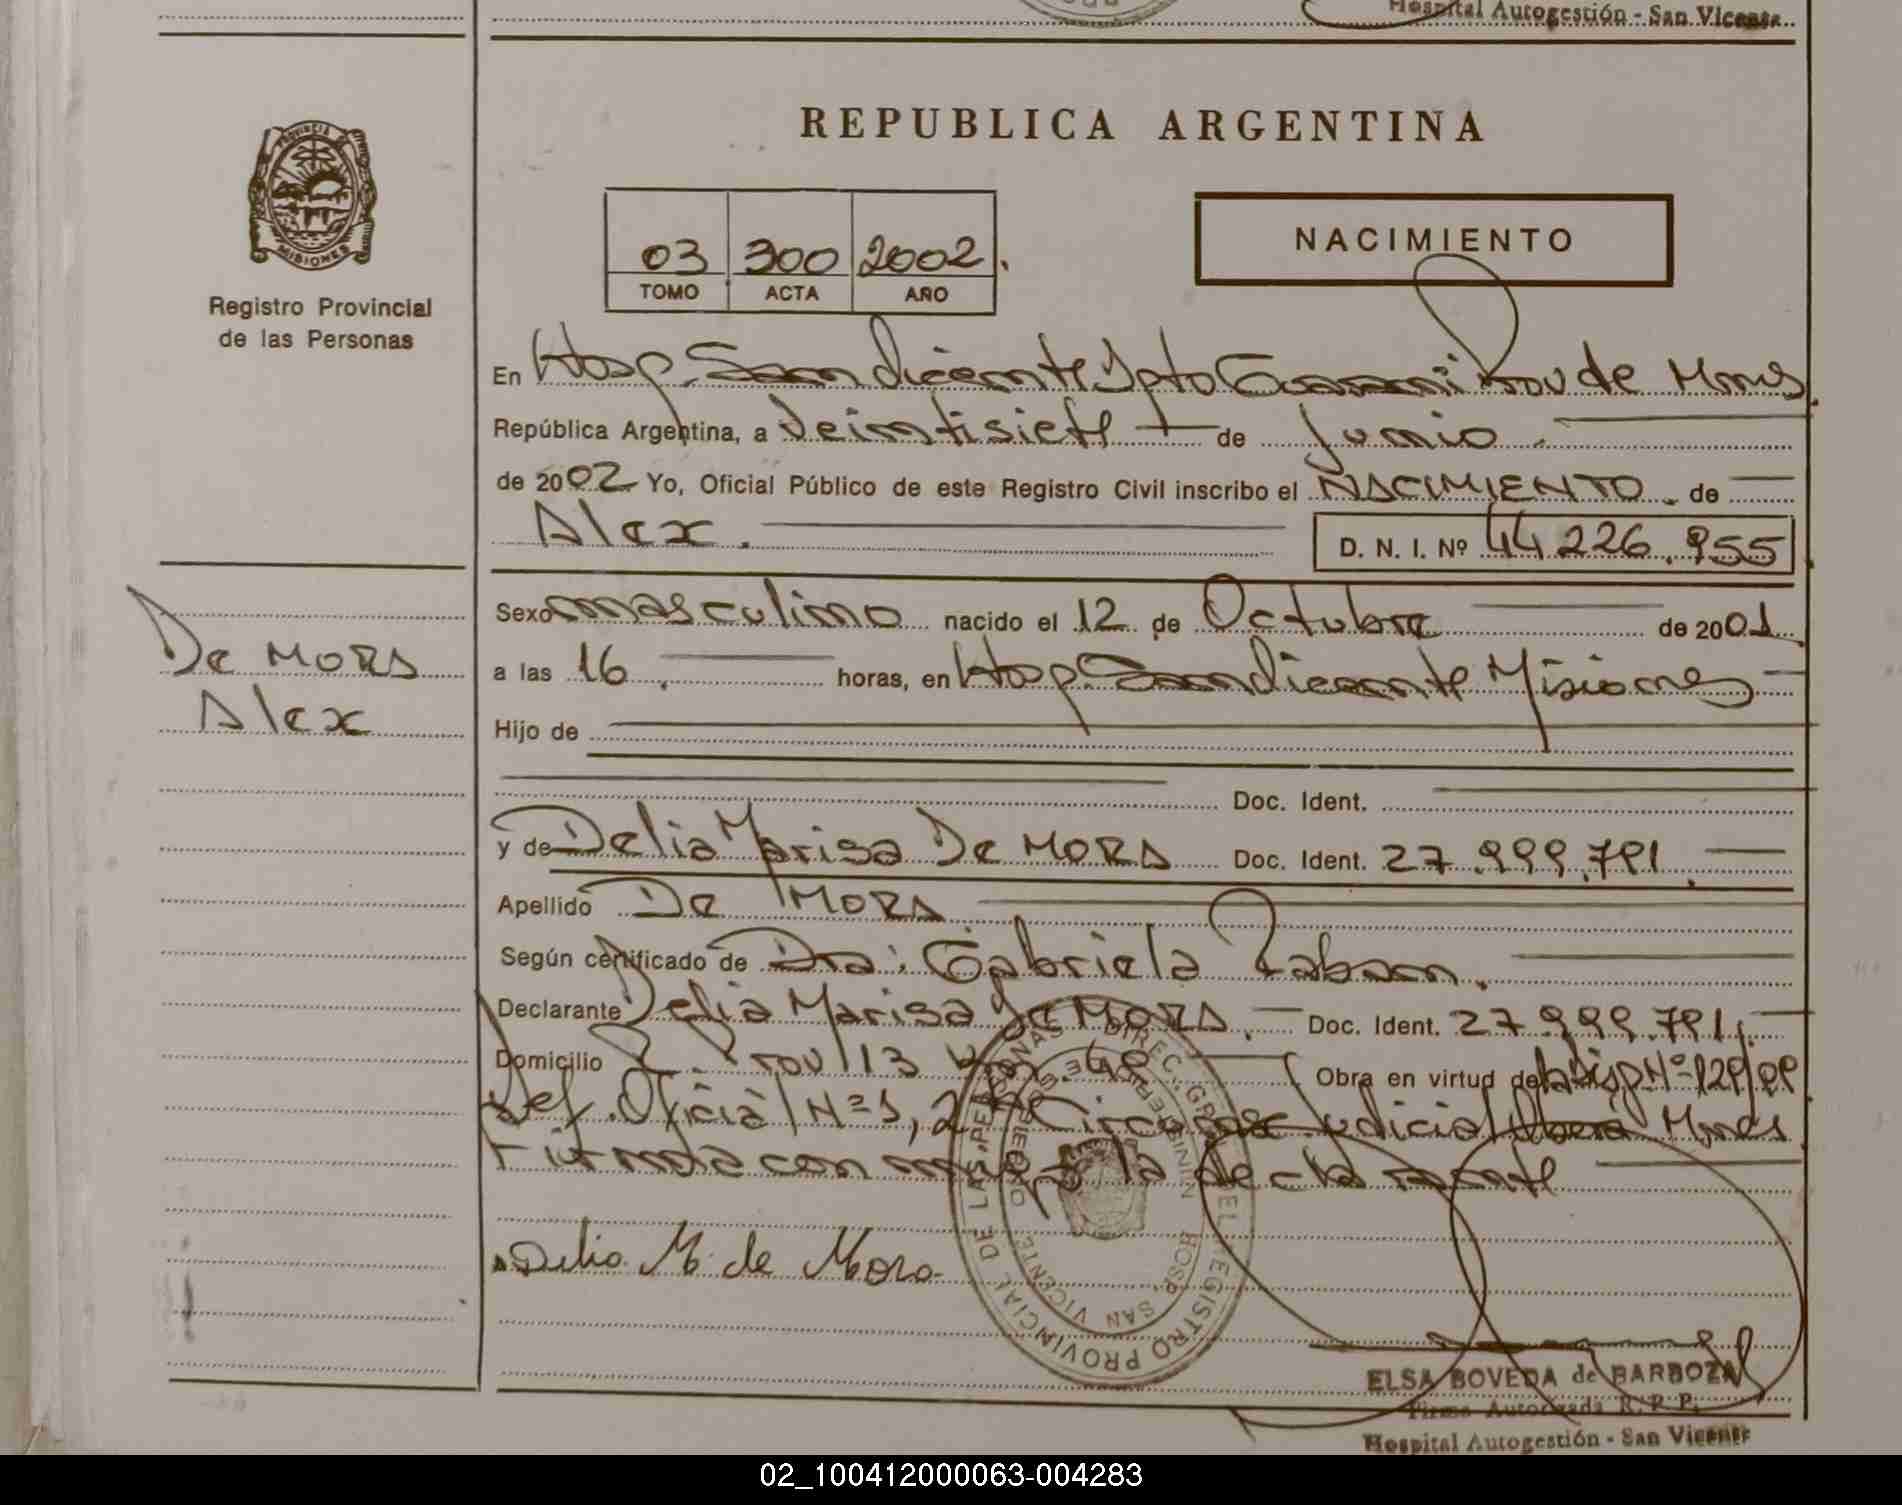 Hospital Autogestión - San Vicente
REPUBLICA ARGENTINA
PROVINCIA DE
MISIONES
Registro Provincial
de las Personas
03 300 2002.
TOMO ACTA AÑO
NACIMIENTO
En Hosp. San Vicente Dpto Guarani Prov de Mnes.
República Argentina, a Veintisiete de Junio.
de 2002 Yo, Oficial Público de este Registro Civil inscribo el NACIMIENTO. de
Alex. D. N. I. Nº 44.226.955
Sexo masculino nacido el 12 de Octubre de 2001
De MORA
a las 16. horas, en Hosp. San Vicente Misiones
Alex
Hijo de
Doc. Ident.
y de Delia Marisa De MORA Doc. Ident. 27.999.791.
Apellido De MORA
Según certificado de Dra: Gabriela Zaban.
Declarante Delia Marisa De MORA. Doc. Ident. 27.999.791.
Domicilio R. Prov 13 km. 40 Obra en virtud de la Disp Nº 129/99
Def. Oficial Nº 1, 2da Circunsc. Judicial Oberá Mnes.
Firmada con migo la declarante
Delia M. de Mora
DIREC. GRAL. DEL REGISTRO PROVINCIAL DE LAS PERSONAS
HOSP. SAN VICENTE
ELSA BOVEDA de BARBOZA
Firma Autorizada R. P. P.
Hospital Autogestión - San Vicente
02_100412000063-004283